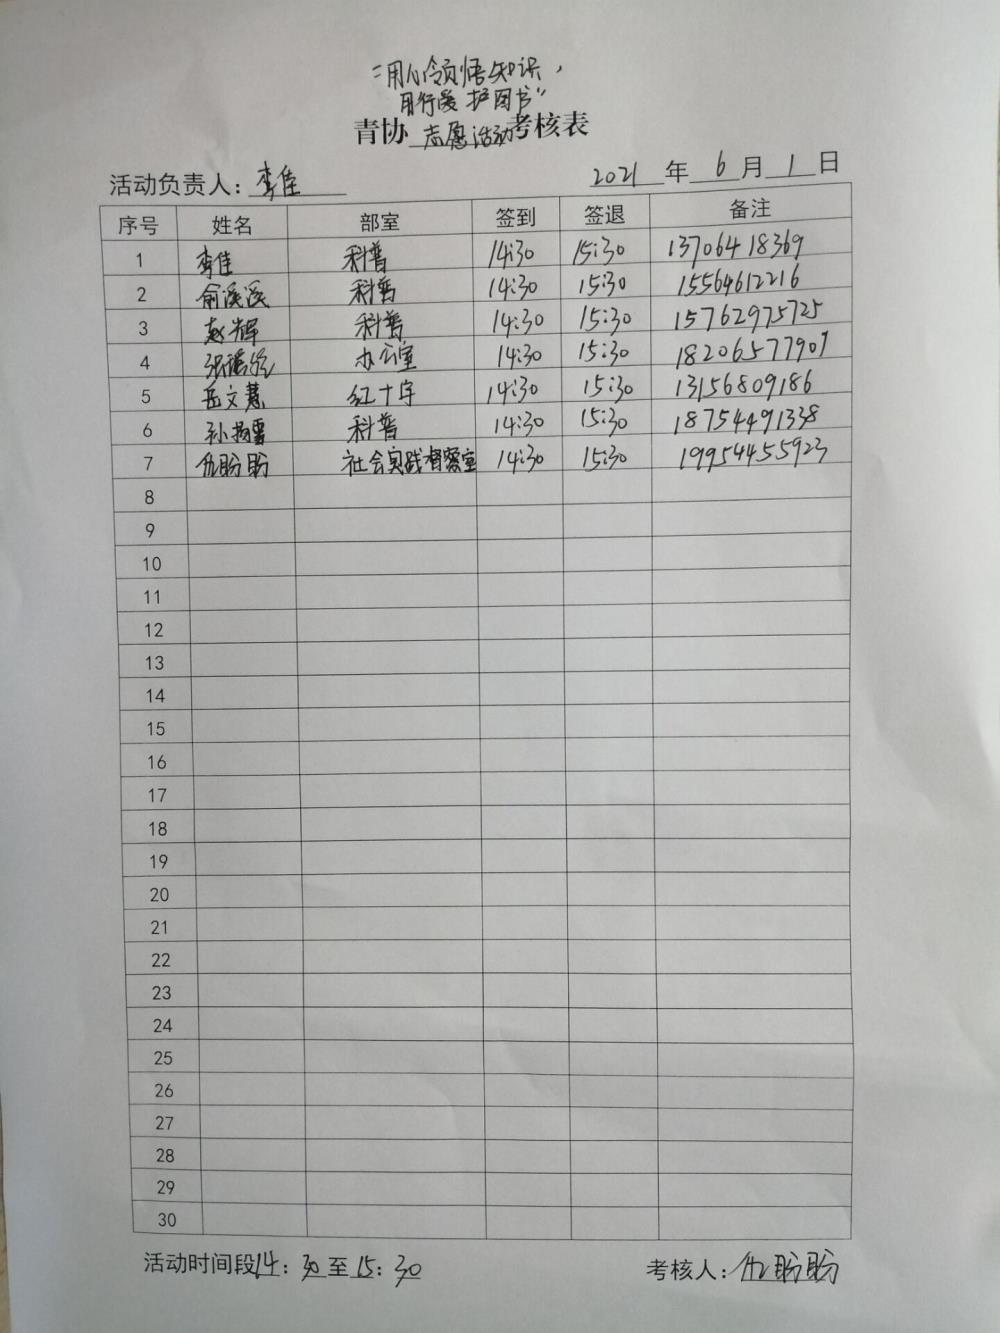 “用心领悟知识，
用行爱护图书”
青协志愿活动考核表
活动负责人：李佳 2021年6月1日
序号 姓名 部室 签到 签退 备注
1 李佳 科普 14:30 15:30 13706418369
2 俞溪溪 科普 14:30 15:30 15564612216
3 赵辉 科普 14:30 15:30 15762975725
4 办公室 14:30 15:30 18206577907
5 岳文慧 红十字 14:30 15:30 13156809186
6 科普 14:30 15:30 18754491338
7 仇盼盼 社会实践督察室 14:30 15:30 19954455923
8
9
10
11
12
13
14
15
16
17
18
19
20
21
22
23
24
25
26
27
28
29
30
活动时间段14：30至15：30 考核人：仇盼盼